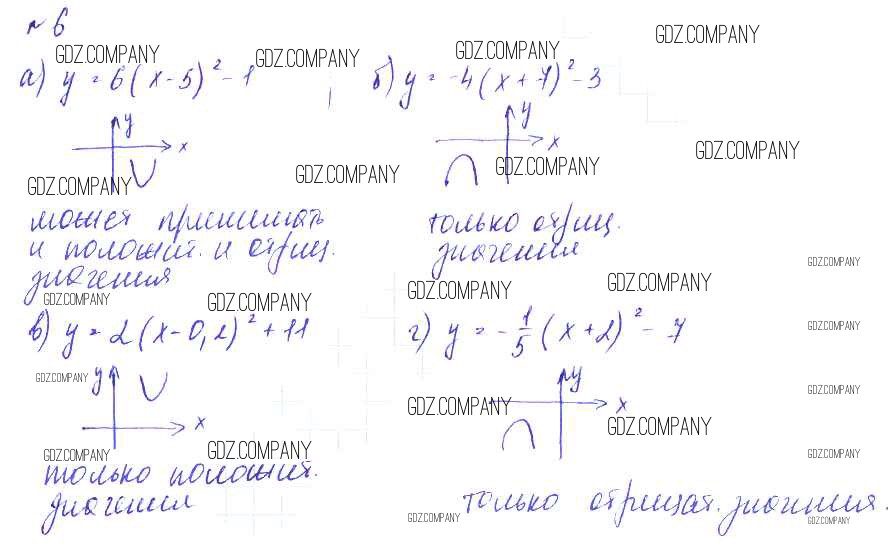 №6
GDZ.COMPANY GDZ.COMPANY GDZ.COMPANY GDZ.COMPANY
а) y = 6(x-5)² - 1 б) y = -4(x+7)² - 3
y y
x x
GDZ.COMPANY GDZ.COMPANY GDZ.COMPANY GDZ.COMPANY
может принимать только отриц.
и положит. и отриц. значения
значения
GDZ.COMPANY
GDZ.COMPANY GDZ.COMPANY GDZ.COMPANY GDZ.COMPANY
в) y = 2(x-0,2)² + 11 г) y = -1/5(x+2)² - 7
GDZ.COMPANY
GDZ.COMPANY y y
GDZ.COMPANY
x x
GDZ.COMPANY GDZ.COMPANY
GDZ.COMPANY GDZ.COMPANY GDZ.COMPANY
только положит.
значения только отрицат. значения.
GDZ.COMPANY GDZ.COMPANY